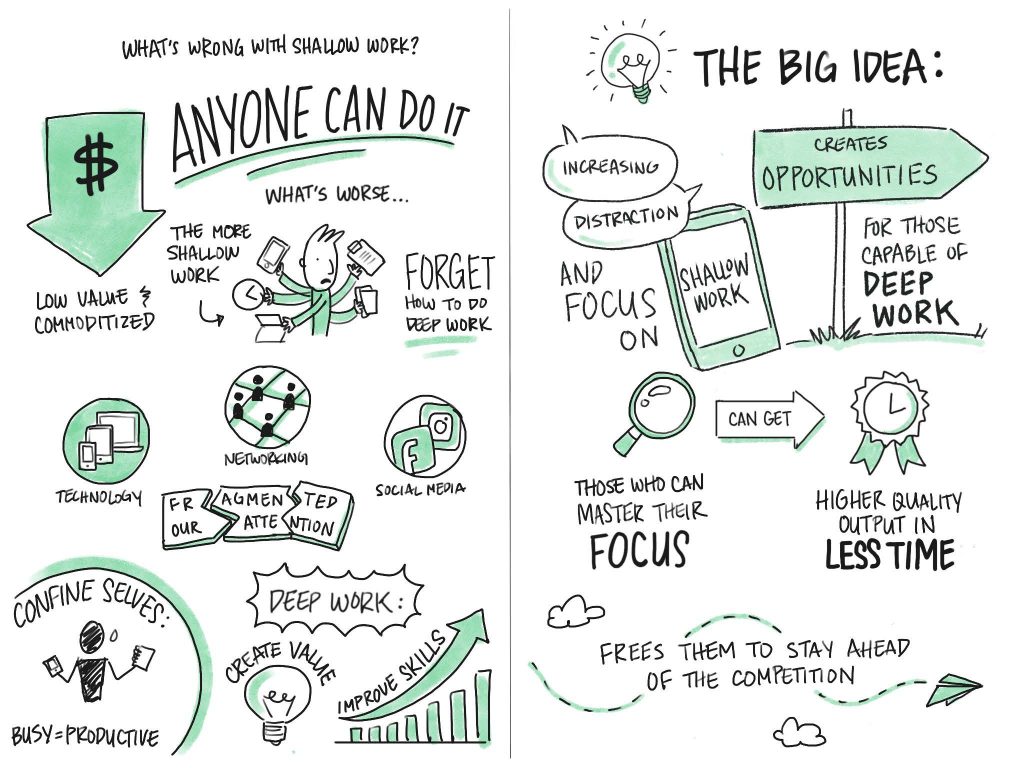 WHAT'S WRONG WITH SHALLOW WORK?
ANYONE CAN DO IT
$
WHAT'S WORSE...
LOW VALUE &
COMMODITIZED
THE MORE
SHALLOW
WORK
FORGET
HOW TO DO
DEEP WORK
TECHNOLOGY
NETWORKING
SOCIAL MEDIA
FRAGMENTED
OUR ATTENTION
CONFINE SELVES:
BUSY=PRODUCTIVE
DEEP WORK:
CREATE VALUE
IMPROVE SKILLS
THE BIG IDEA:
INCREASING
DISTRACTION
AND
FOCUS
ON
SHALLOW
WORK
CREATES
OPPORTUNITIES
FOR THOSE
CAPABLE OF
DEEP
WORK
THOSE WHO CAN
MASTER THEIR
FOCUS
CAN GET
HIGHER QUALITY
OUTPUT IN
LESS TIME
FREES THEM TO STAY AHEAD
OF THE COMPETITION